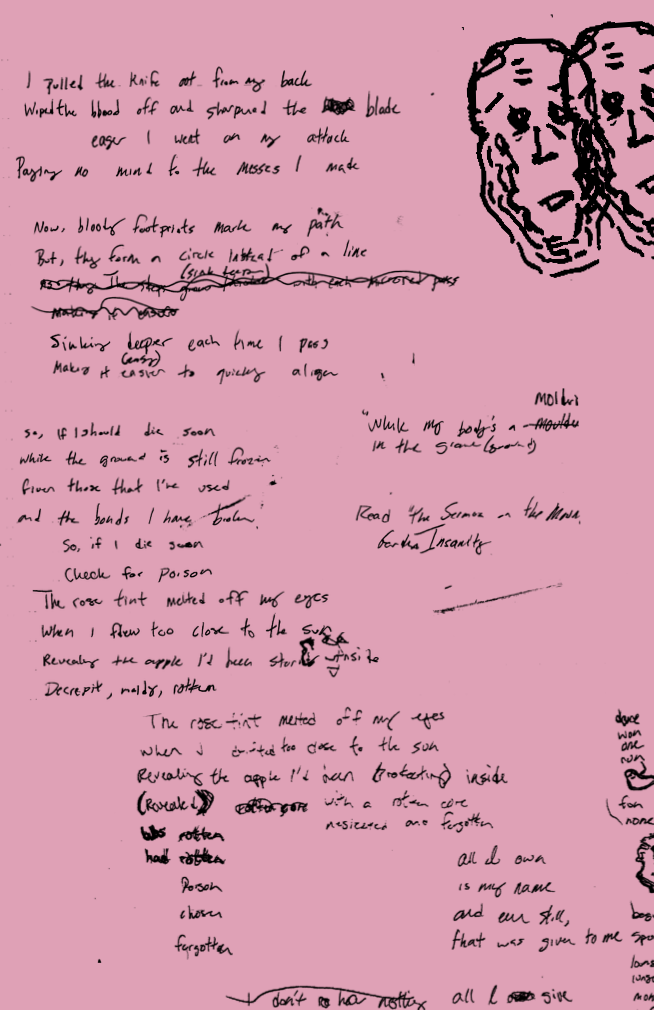 I pulled the knife out from my back
Wiped the blood off and sharpened the blade
eager I went on my attack
Paying no mind to the messes I made
Now, bloody footprints mark my path
But, they form a circle instead of a line
(sink deeper)
As they The steps grow with each pass
Making it easier
Sinking deeper each time I pass
(easy)
Making it easier to quickly align
So, if I should die soon
while the ground is still frozen
Given those that I've used
and the bonds I have broken
So, if I die soon
Check for poison
"While my body's a
in the grave (ground)
Read "The Sermon on the
Garden Insanity
The rose tint melted off my eyes
When I flew too close to the sun
Revealing the apple I'd been storing inside
Decrepit, moldy, rotten
The rose tint melted off my eyes
when I drifted too close to the sun
Revealing the apple I'd been (protecting) inside
(Revealed) rotten core with a rotten core
and forgotten
rotten
had rotten
Poison
chosen
forgotten
all I own
is my name
and even still,
that was given to me
I don't have nothing all I give
won
one
run
none